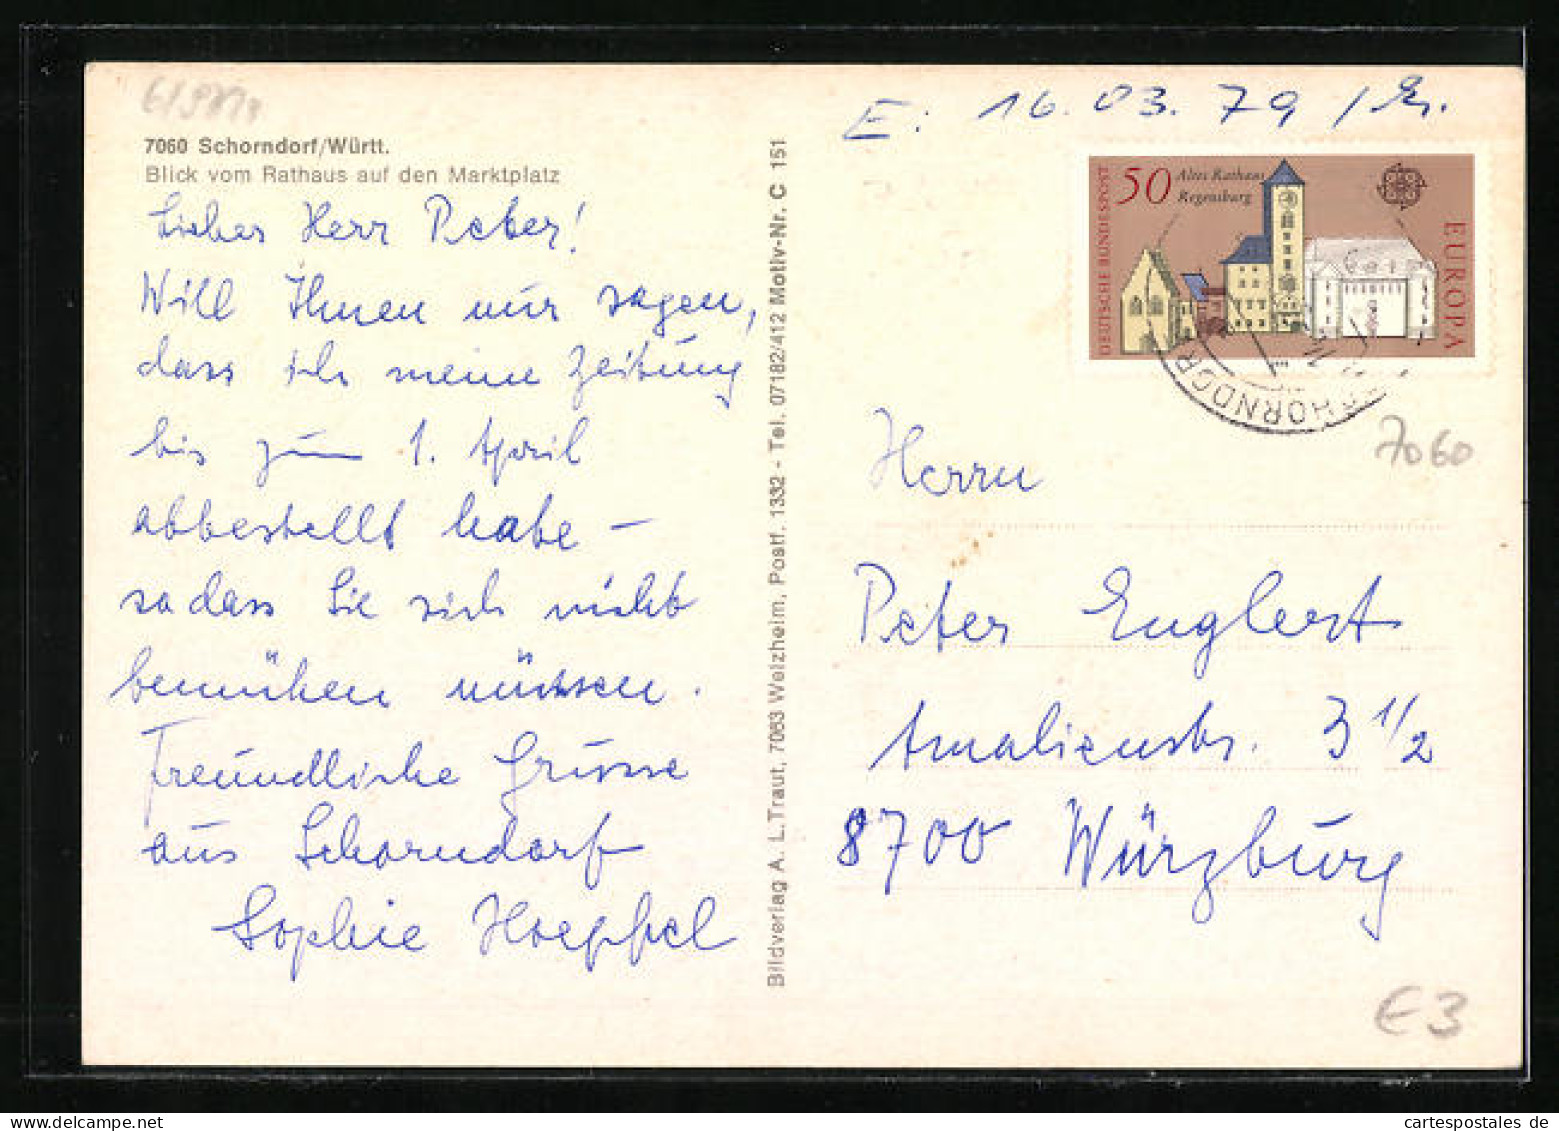 7060 Schorndorf/Württ.
Blick vom Rathaus auf den Marktplatz
Lieber Herr Peter!
Will Ihnen nur sagen,
dass ich meine Zeitung
bis zum 1. April
abbestellt habe –
so dass Sie sich nicht
bemühen müssen.
Freundliche Grüsse
aus Schorndorf
Sophie Hoeppel
Bildverlag A. L. Traut, 7063 Welzheim, Postf. 1332 - Tel. 07182/412 Motiv-Nr. C 151
E: 16.03.79 /
DEUTSCHE BUNDESPOST
50
Altes Rathaus
Regensburg
EUROPA
SCHORNDORF
7060
Herrn
Peter Englert
Amalienstr. 3 1/2
8700 Würzburg
€3
cartespostales de